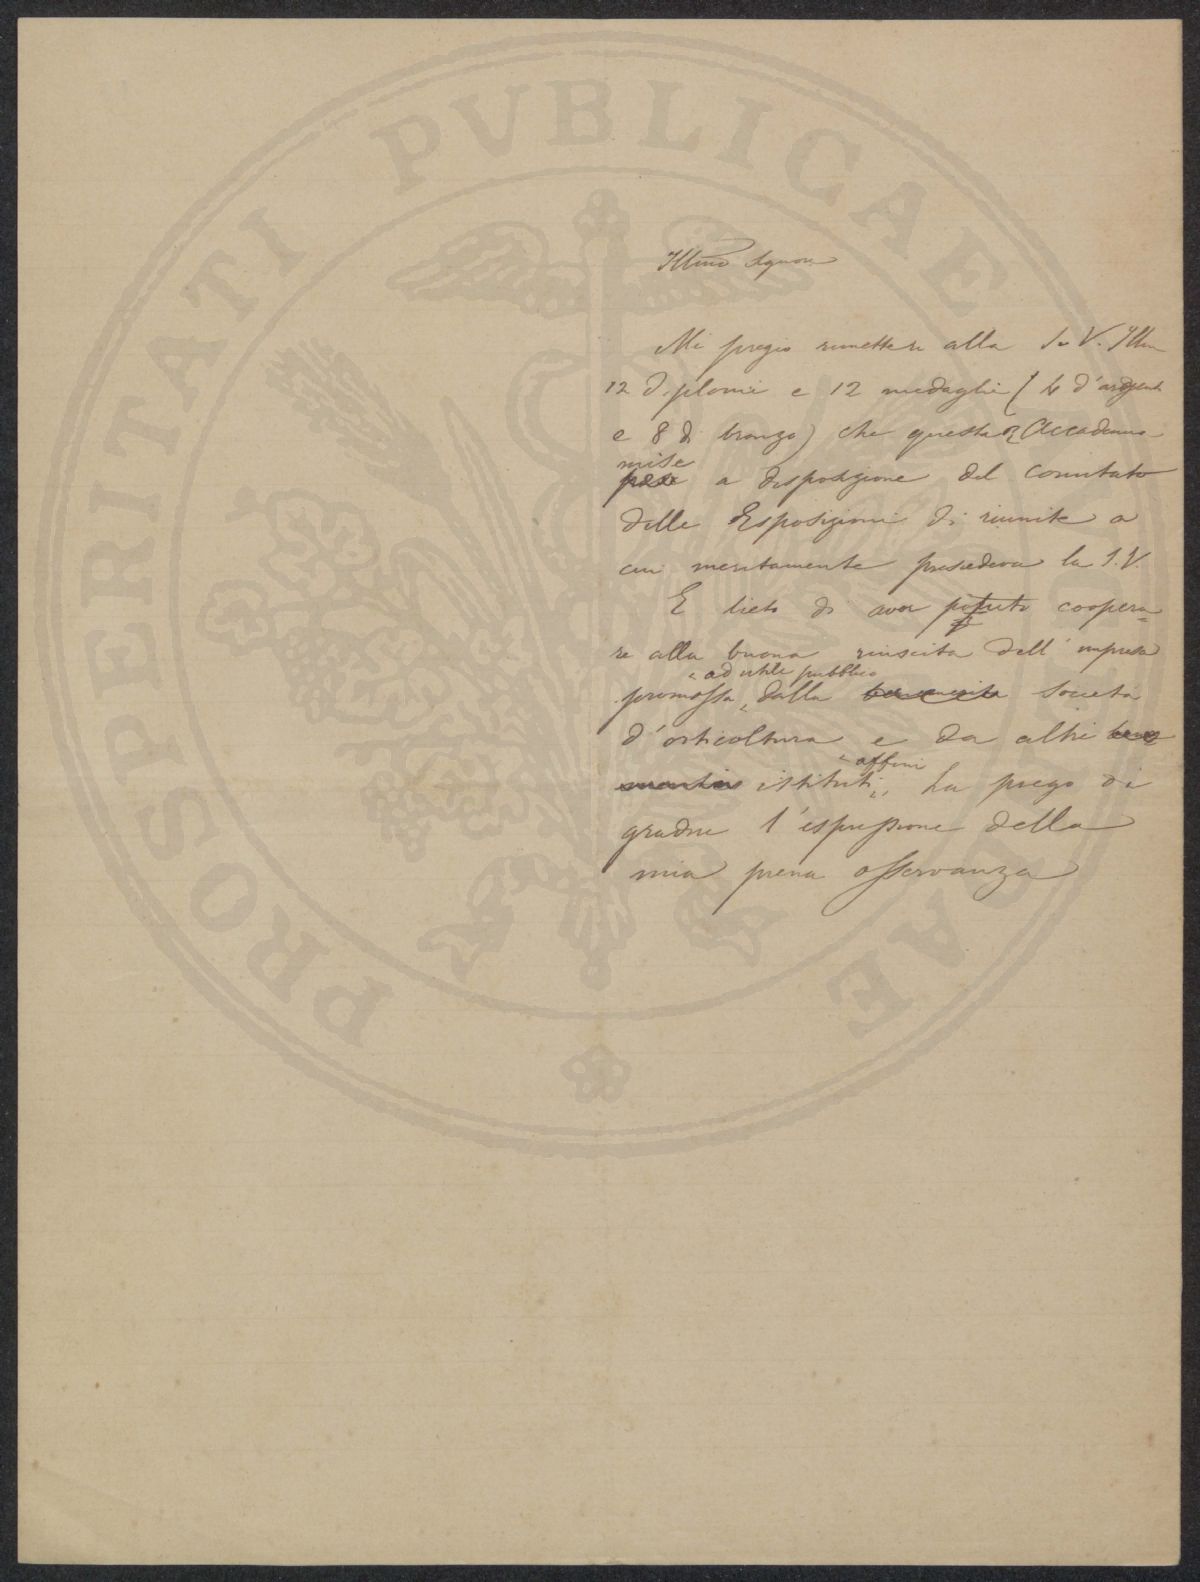 PROSPERITATI PVBLICAE AVGENDAE
Illmo Signore
Mi pregio rimettere alla S. V. Illma
12 diplomi e 12 medaglie (4 d'argento
e 8 di bronzo) che questa R Accademia
mise
pose a disposizione del comitato
delle Esposizioni di riunite a
cui meritamente presiedeva la S. V.
E lieto di aver potuto coopera=
re alla buona riuscita dell' impresa
ad utile pubblico
promossa, dalla benemerita società
d'orticoltura e da altri bene
affini
meritis istituti, La prego di
gradire l'espressione della
mia piena osservanza